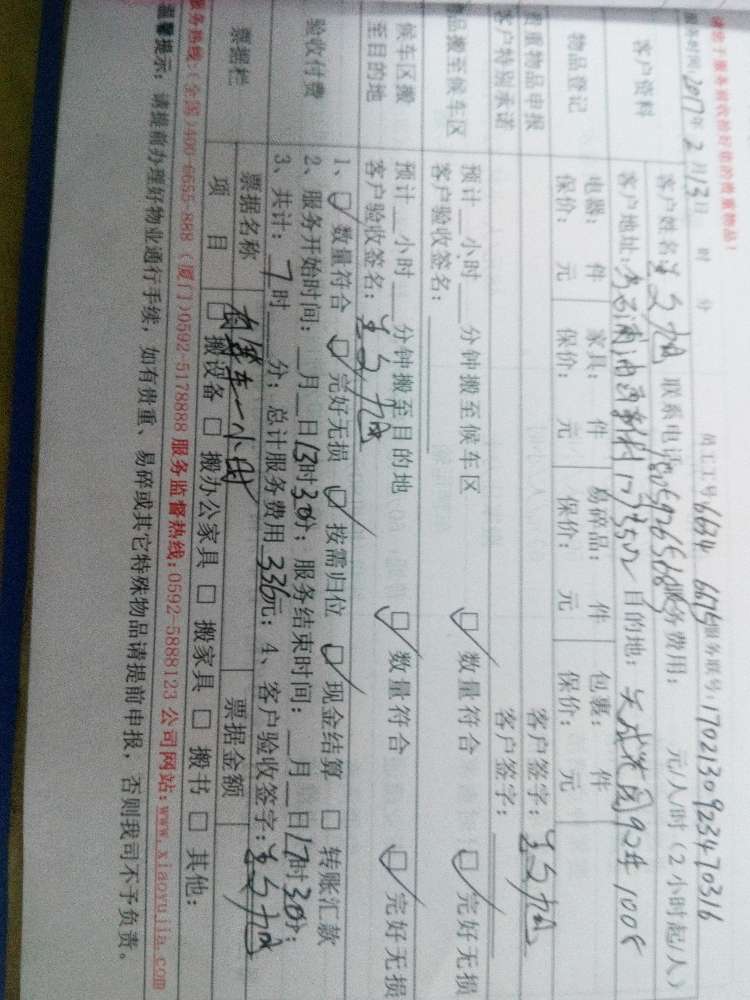 请您于服务前收拾好您的贵重物品！
服务时间:2017年2月13日 时 分 员工工号6634 6675服务账号:170213092347 0316
客户资料
客户姓名 联系电话 服务费用: 元/人/时(2小时起/人)
客户地址: 目的地: 92# 1008
物品登记
电器: 件 家具: 件 易碎品: 件 包裹: 件
保价: 元 保价: 元 保价: 元 保价: 元
贵重物品申报 客户签字:
客户特别承诺 客户签字:
物品搬至候车区
预计__小时__分钟搬至候车区 □ 数量符合 □ 完好无损
客户验收签名:
候车区搬至目的地
预计__小时__分钟搬至目的地 □ 数量符合 □ 完好无损
客户验收签名:
验收付费
1、□ 数量符合 □ 完好无损 □ 按需归位 □ 现金结算 □ 转账汇款
2、服务开始时间:__月__日13时30分; 服务结束时间:__月__日17时30分;
3、共计: 7时__分; 总计服务费用336元; 4、客户验收签字:
票据栏
票据名称 票据金额
项目 □ 搬设备 □ 搬办公家具 □ 搬家具 □ 搬书 □ 其他:
服务热线:(全国)400-6655-888 (厦门)0592-5178888 服务监督热线:0592-5888123 公司网站:www.xiaoyujia.com
温馨提示: 请提前办理好物业通行手续, 如有贵重、易碎或其它特殊物品请提前申报, 否则我司不予负责。